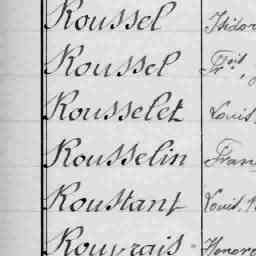 Roussel Isidor
Roussel Frois
Rousselet Louis
Rousselin Fran
Roustant Louis
Rouvrais Honor